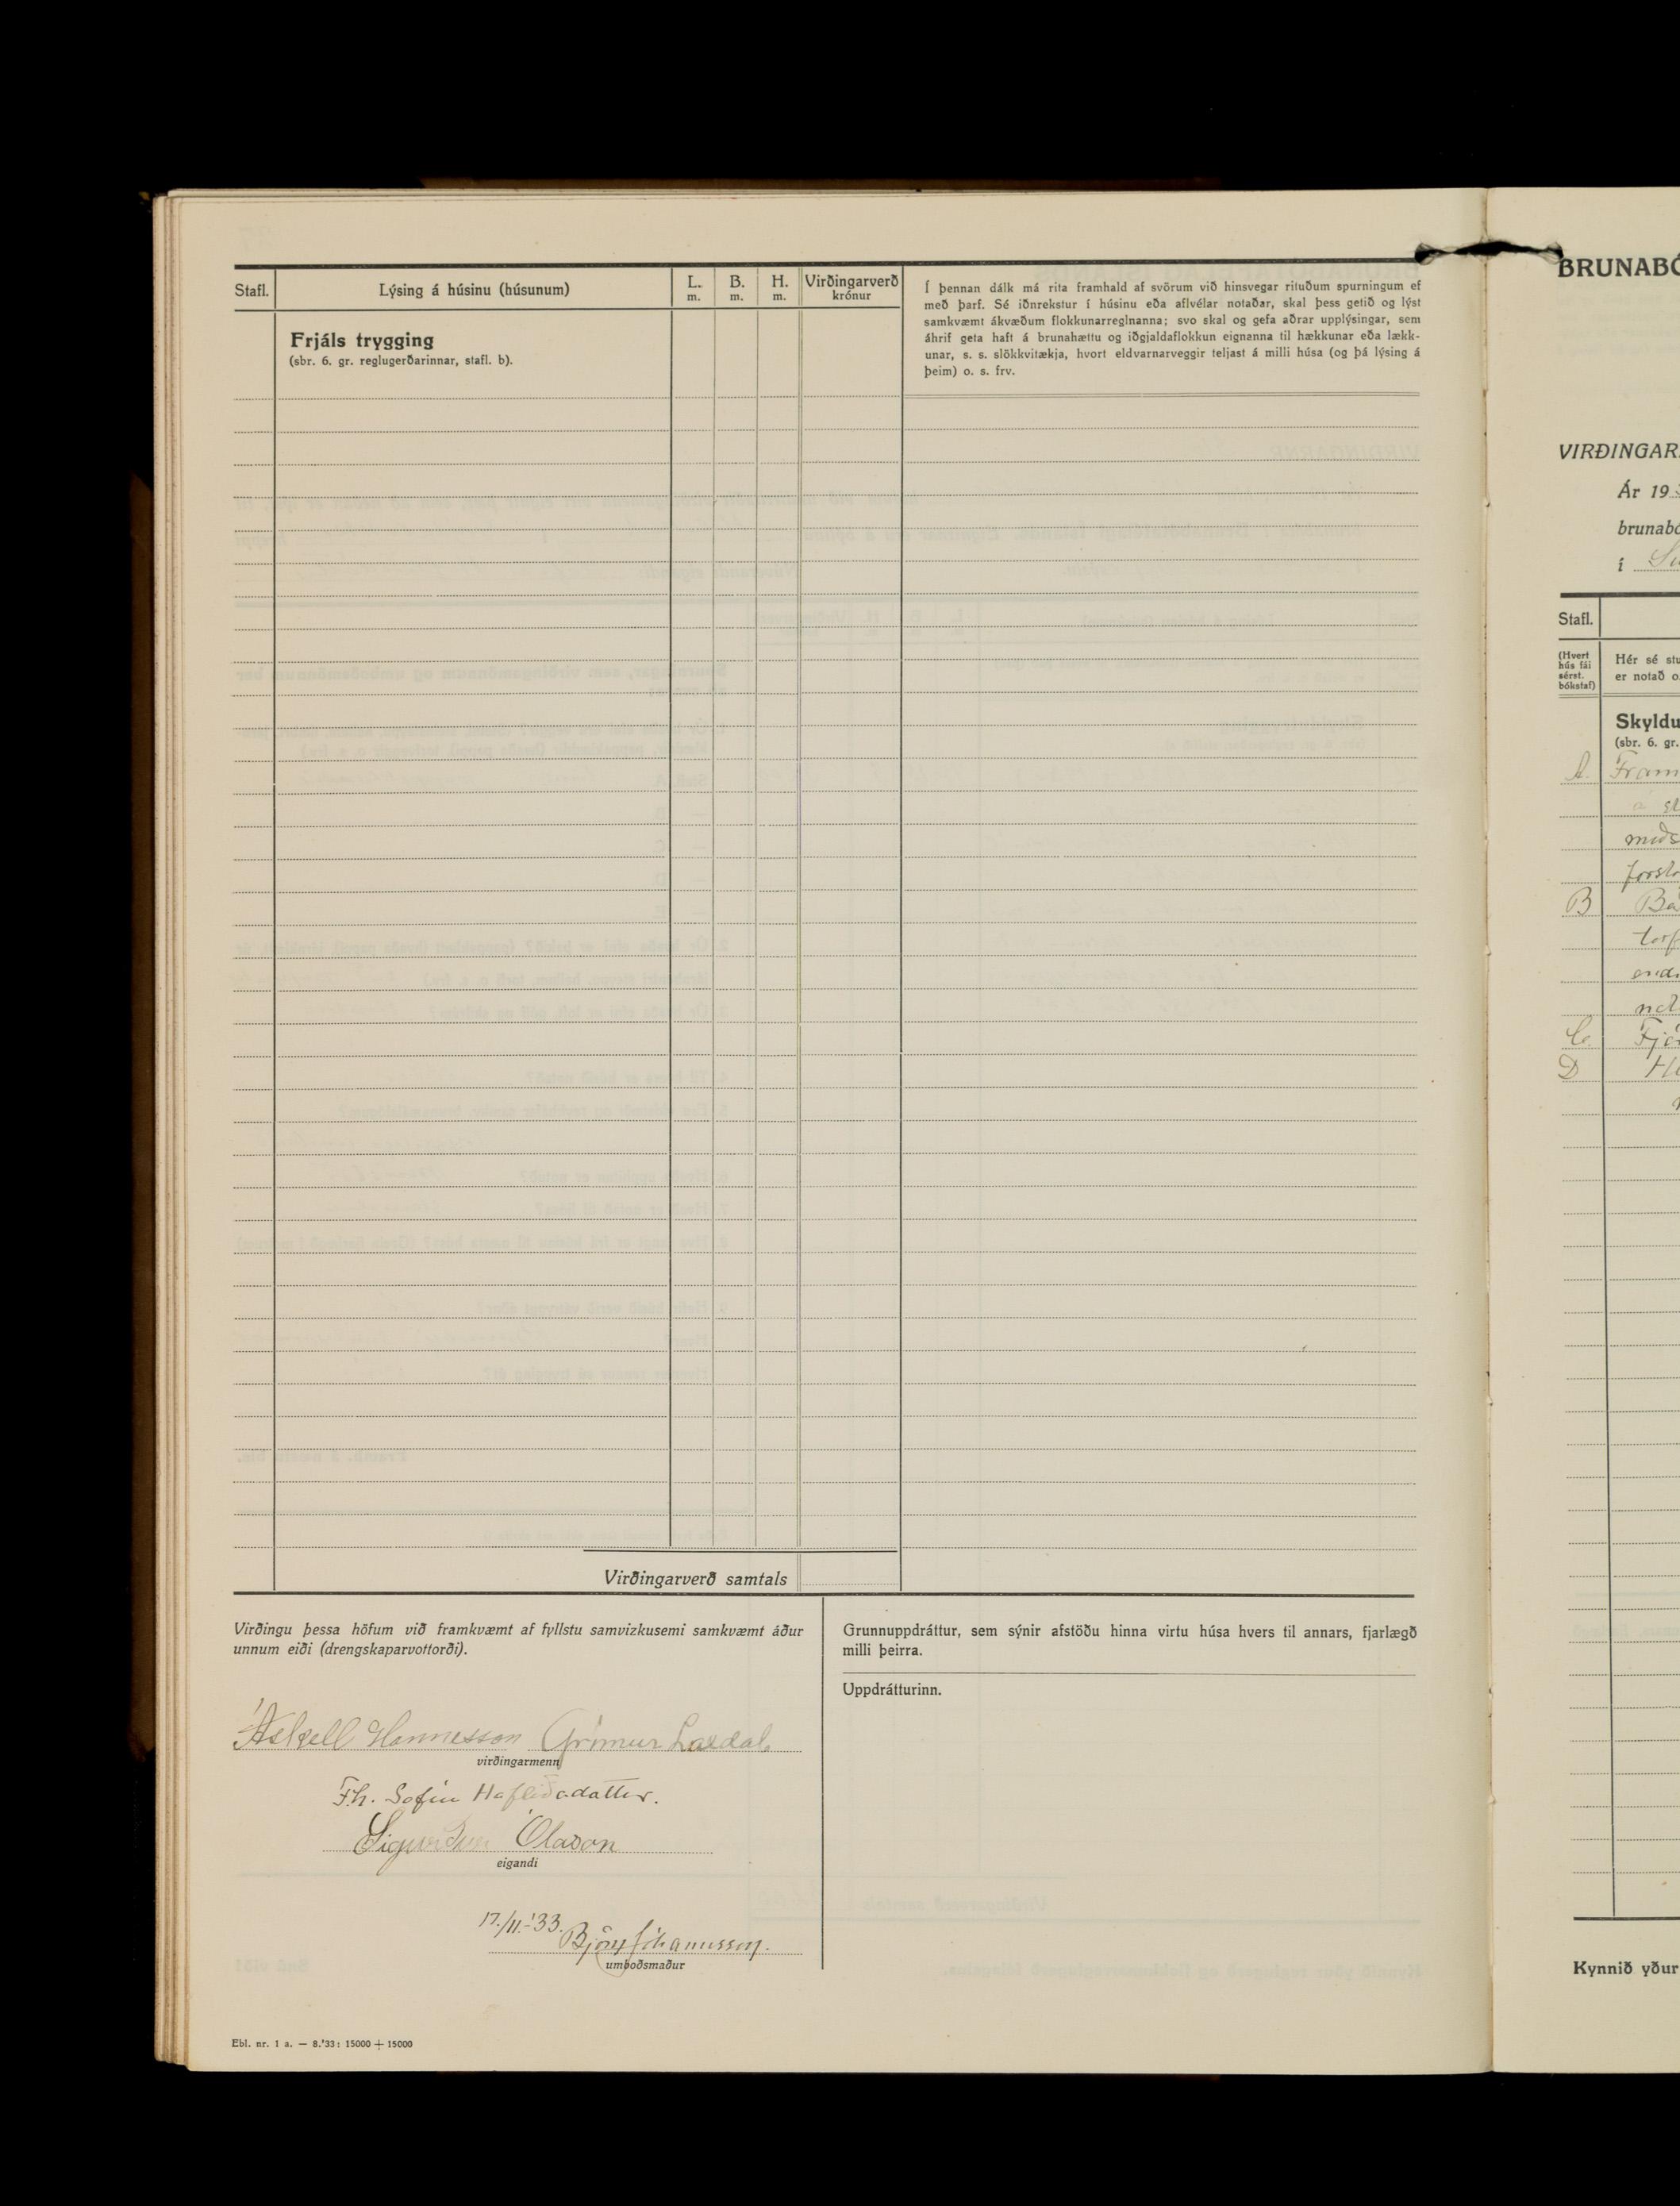 Stafl. Lýsing á húsinu (húsunum) L. m. B. m. H. m. Virðingarverð krónur
Frjáls trygging
(sbr. 6. gr. reglugerðarinnar, stafl. b).
Í þennan dálk má rita framhald af svörum við hinsvegar rituðum spurningum ef
með þarf. Sé iðnrekstur í húsinu eða aflvélar notaðar, skal þess getið og lýst
samkvæmt ákvæðum flokkunarreglnanna; svo skal og gefa aðrar upplýsingar, sem
áhrif geta haft á brunahættu og iðgjaldaflokkun eignanna til hækkunar eða lækk-
unar, s. s. slökkvitækja, hvort eldvarnarveggir teljast á milli húsa (og þá lýsing á
þeim) o. s. frv.
Virðingarverð samtals
Virðingu þessa höfum við framkvæmt af fyllstu samvizkusemi samkvæmt áður
unnum eiði (drengskaparvottorði).
Áskell Hannesson Grímur Laxdal
virðingarmenn
F.h. Sofíu Hafliðadóttur.
Sigurður Ólason
eigandi
17./11.-'33.
Björn Jóhannsson.
umboðsmaður
Grunnuppdráttur, sem sýnir afstöðu hinna virtu húsa hvers til annars, fjarlægð
milli þeirra.
Uppdrátturinn.
Ebl. nr. 1 a. — 8.'33: 15000 + 15000
BRUNABÓ
VIRÐINGAR
Ár 19
brunabó
í
Stafl.
(Hvert
hús fái
sérst.
bókstaf)
Hér sé stu
er notað o.
Skyldu
(sbr. 6. gr.
A. Fram
B Ba
torf
C.
D
Kynnið yður